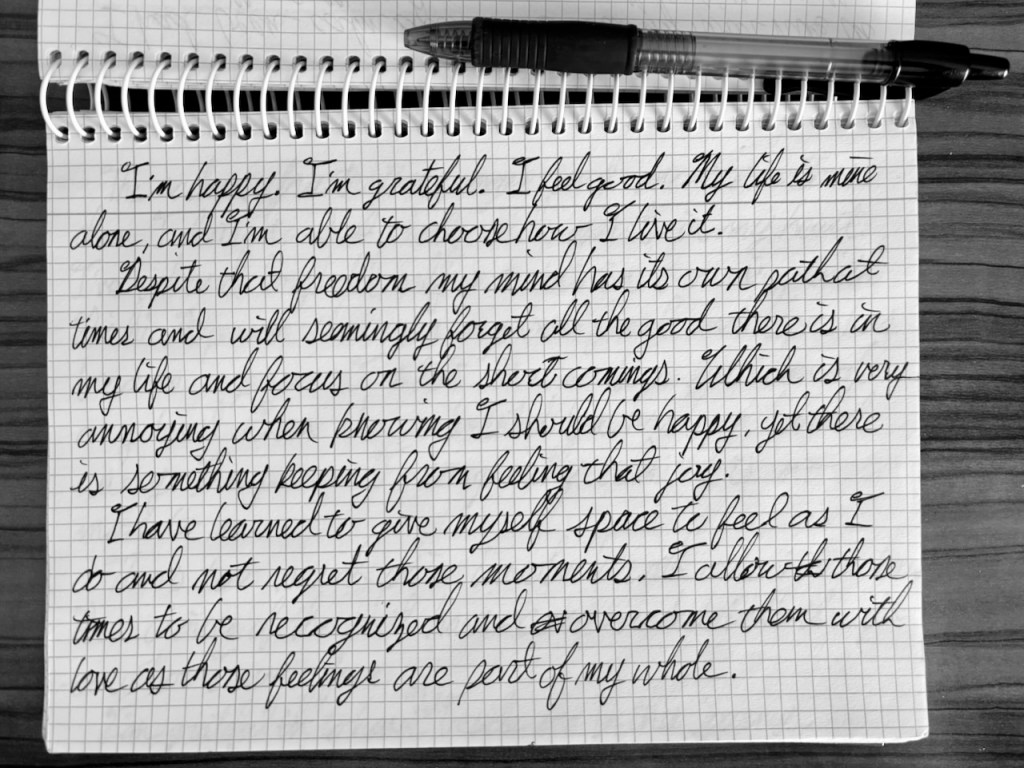 I'm happy. I'm grateful. I feel good. My life is mine
alone, and I'm able to choose how I live it.
Despite that freedom my mind has its own path at
times and will seemingly forget all the good there is in
my life and focus on the short comings. Which is very
annoying when knowing I should be happy, yet there
is something keeping from feeling that joy.
I have learned to give myself space to feel as I
do and not regret those moments. I allow those
times to be recognized and overcome them with
love as those feelings are part of my whole.